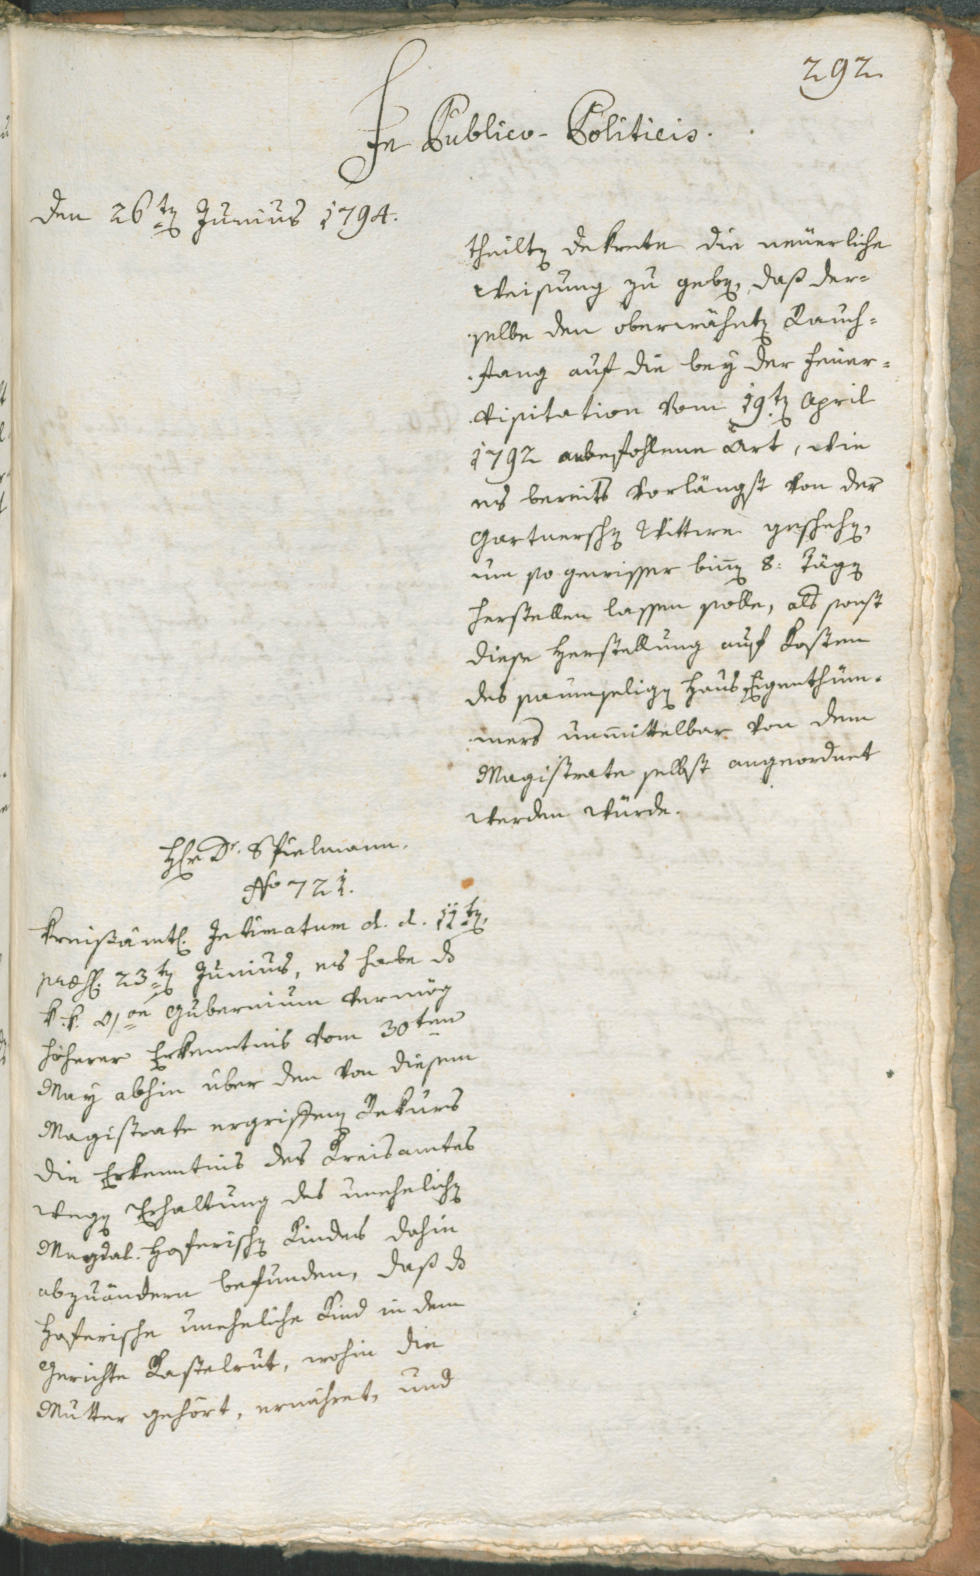 292.
In Publico-Politicis.
den 26ten Junius 1794.
theilten Dekrete die neuerliche
Weisung zu geben, daß der=
selbe den oberwähnten Rauch=
fang auf die bey der Feuer=
visitation vom 19ten April
1792 anbefohlene Art, wie
es bereits vorlängst von der
Gartnerschen Wittwe geschehen,
um so gewisser binnen 8: Tägen
herstellen lassen solle, als sonst
diese Herstellung auf Kosten
des saumseligen Haus Eigenthüm=
mers unmittelbar von dem
Magistrate selbst angeordnet
werden würde.
Herr Dr. Spielmann.
No 721.
Kreisämtl. Intimatum d. d. 11ten
præs. 23ten Junius, es habe das
k. k. o/öe Gubernium vermög
höherer Erkenntnis vom 30ten
May abhin über den von diesem
Magistrate ergriffenen Rekurs
die Erkenntnis des Kreisamtes
wegen Erhaltung des unehelichen
Magdal. Hoferischen Kindes dahin
abzuändern befunden, daß das
Hoferische uneheliche Kind in dem
Gerichte Kastelrut, wohin die
Mutter gehört, ernähret, und